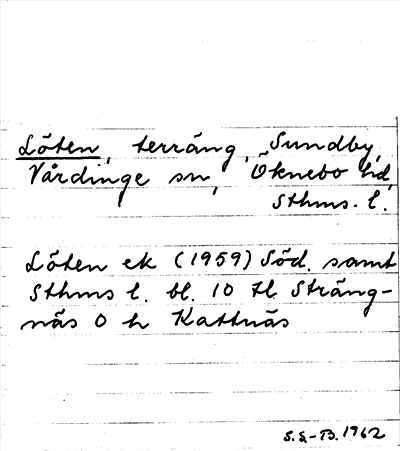 Löten, terräng, Sundby,
Vårdinge sn, Öknebo hd,
Sthms. l.
Löten ek (1959) Söd. samt
Sthms l. bl. 10 tl. Sträng-
näs O h Kattnäs
S.S.-B. 1962